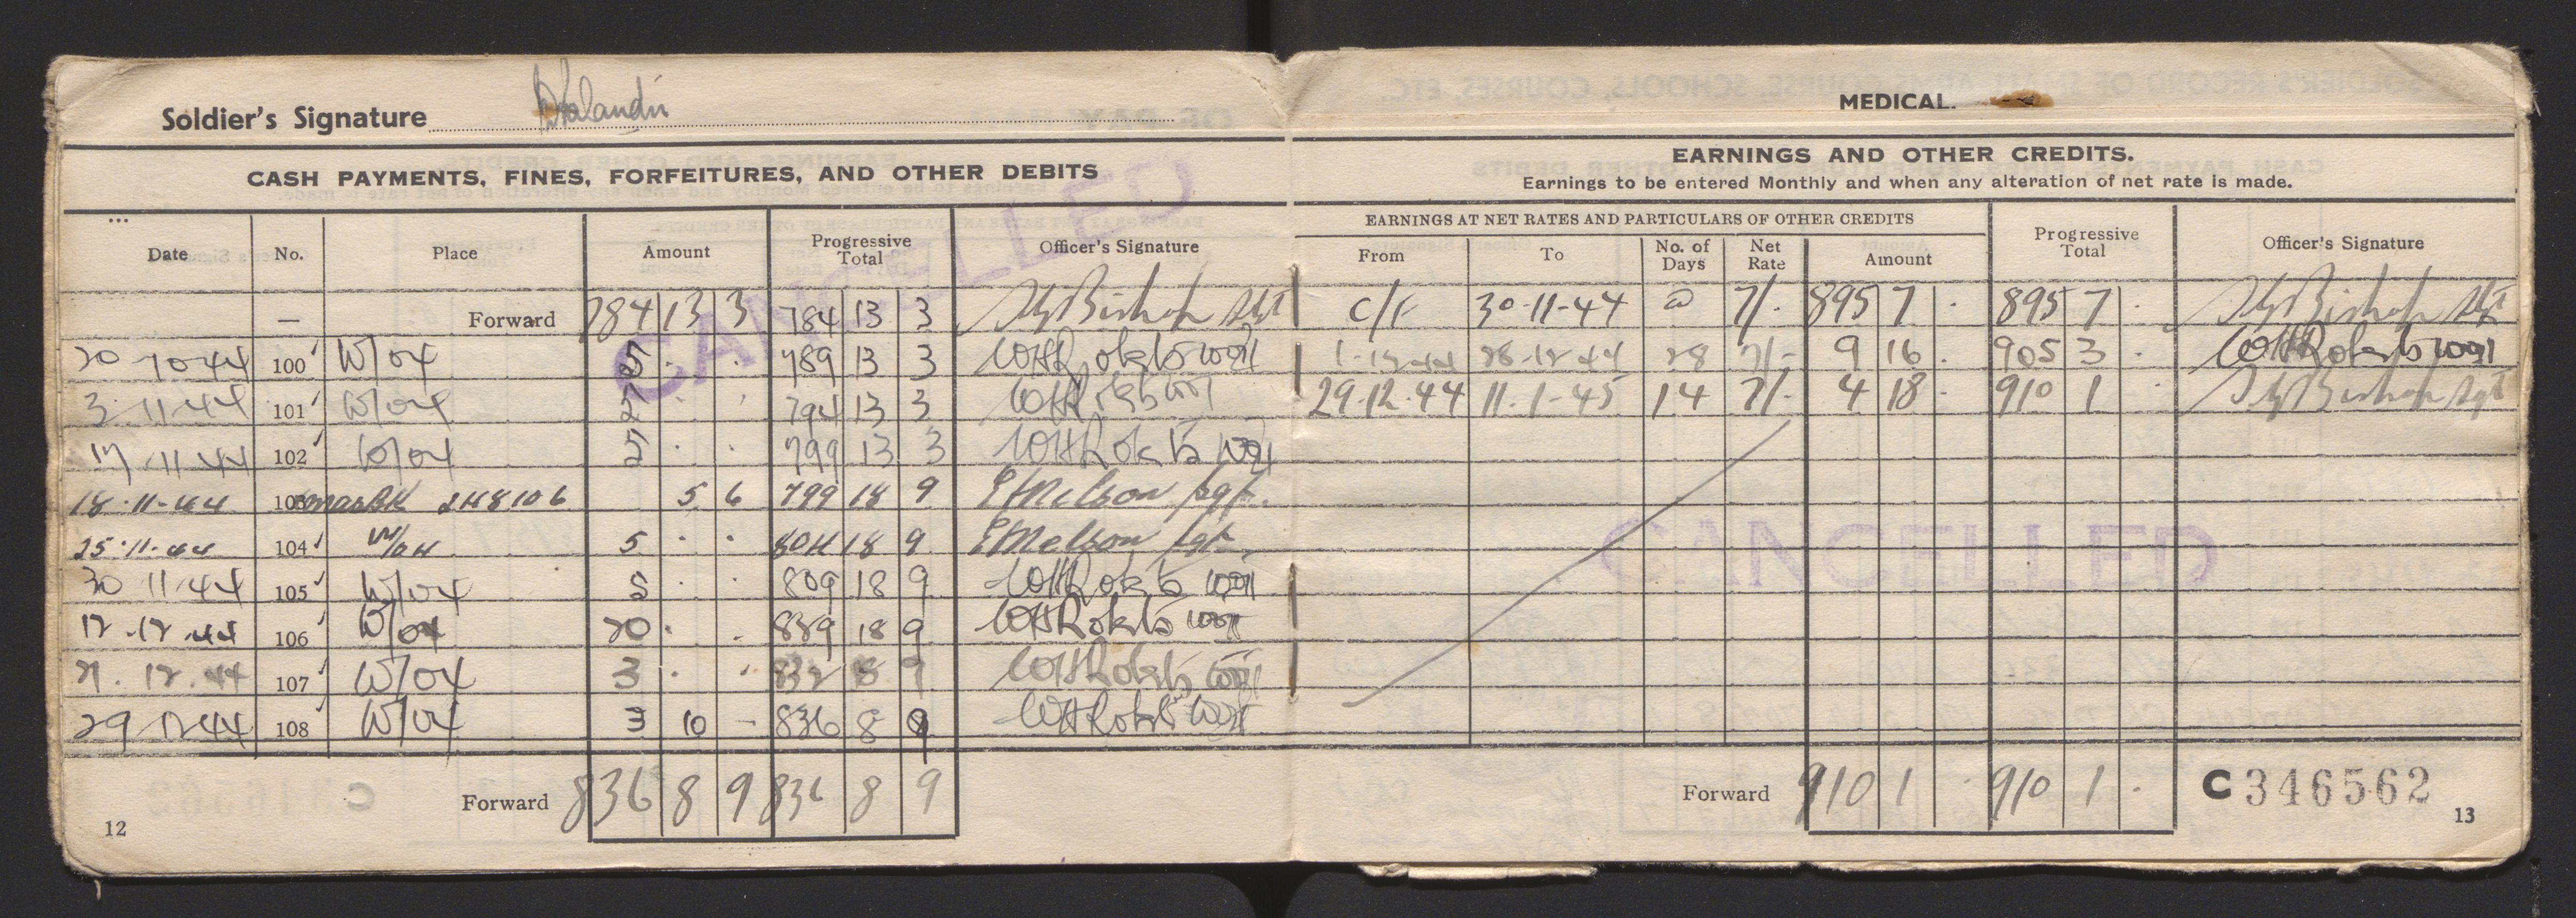 Soldier's Signature
CASH PAYMENTS, FINES, FORFEITURES, AND OTHER DEBITS
CANCELLED
Date No. Place Amount Progressive Total Officer's Signature
— Forward 784 13 3 784 13 3 Bishop Sgt
20 10 44 100 W/04 5 · · 789 13 3 WHRoberts
3 11 44 101 W/04 5 · · 794 13 3 WHRoberts
17 11 44 102 W/04 5 · · 799 13 3 WHRoberts
18·11·44 103 248106 5 6 799 18 9 Sgt.
25·11·44 104 W/04 5 · · 804 18 9 Sgt.
30 11 44 105 W/04 5 · · 809 18 9 WHRoberts
12 12 44 106 W/04 20 · · 829 18 9 WHRoberts
21 · 12 · 44 107 W/04 3 · · 832 8 9 WHRoberts
29 12 44 108 W/04 3 10 — 836 8 9 WHRoberts
Forward 836 8 9 836 8 9
12
MEDICAL.
EARNINGS AND OTHER CREDITS.
Earnings to be entered Monthly and when any alteration of net rate is made.
EARNINGS AT NET RATES AND PARTICULARS OF OTHER CREDITS
From To No. of Days Net Rate Amount Progressive Total Officer's Signature
C/F 30·11·44 @ 7/- 895 7 · 895 7 · Bishop Sgt
1·12·44 28·12·44 28 7/- 9 16 · 905 3 · WHRoberts
29·12·44 11·1·45 14 7/- 4 18 · 910 1 Bishop Sgt
CANCELLED
Forward 910 1 · 910 1 · C346562
13